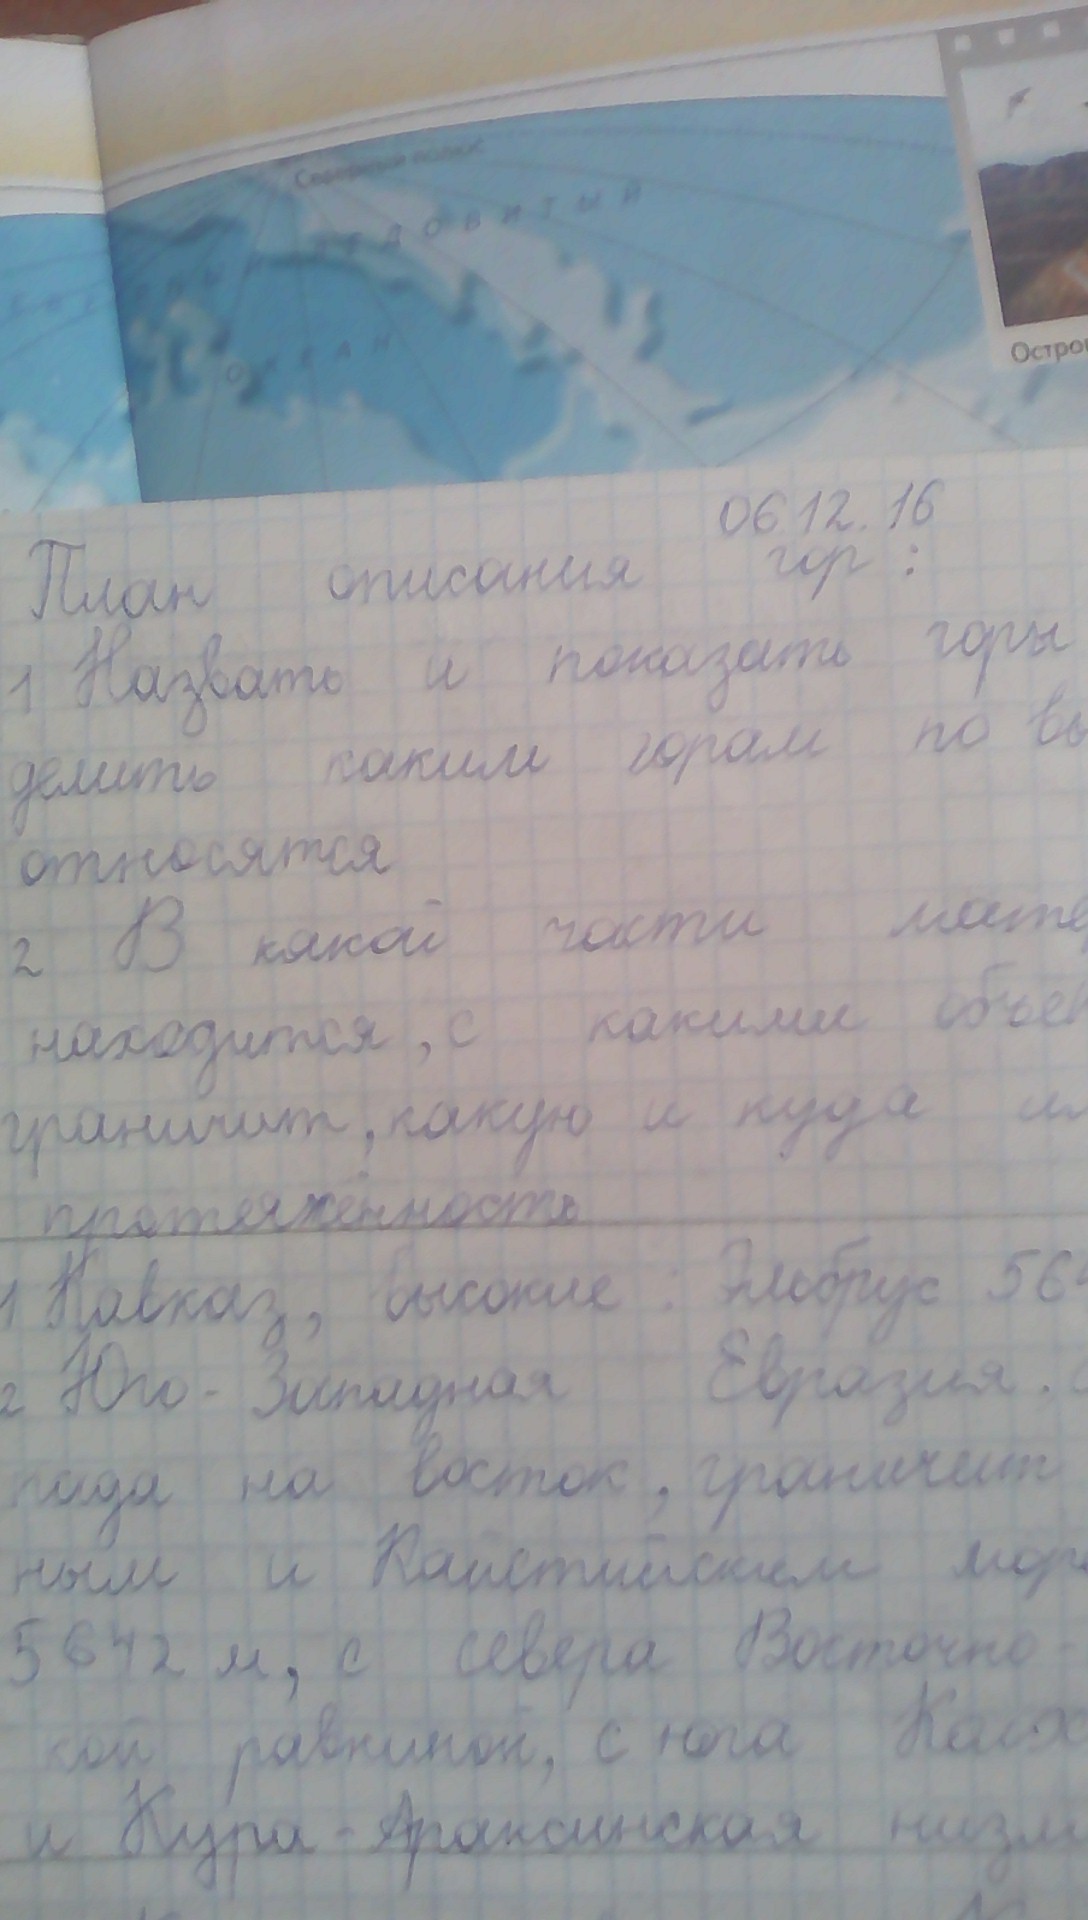 Северный полюс
ЛЕДОВИТЫЙ
ОКЕАН
Остров
06 12. 16
План описания гор:
1 Назвать и показать горы
делить каким горам по вы
относятся
2 В какой части мате
находится, с какими объек
граничит, какую и куда им
протяжённость
1 Кавказ, высокие : Эльбрус 564
2 Юго-Западная Евразия.
пада на восток, граничит
ным и Каспийским мор
5642 м, с севера Восточно-
кой равниной, с юга Колх
и Кура-Араксинская низм